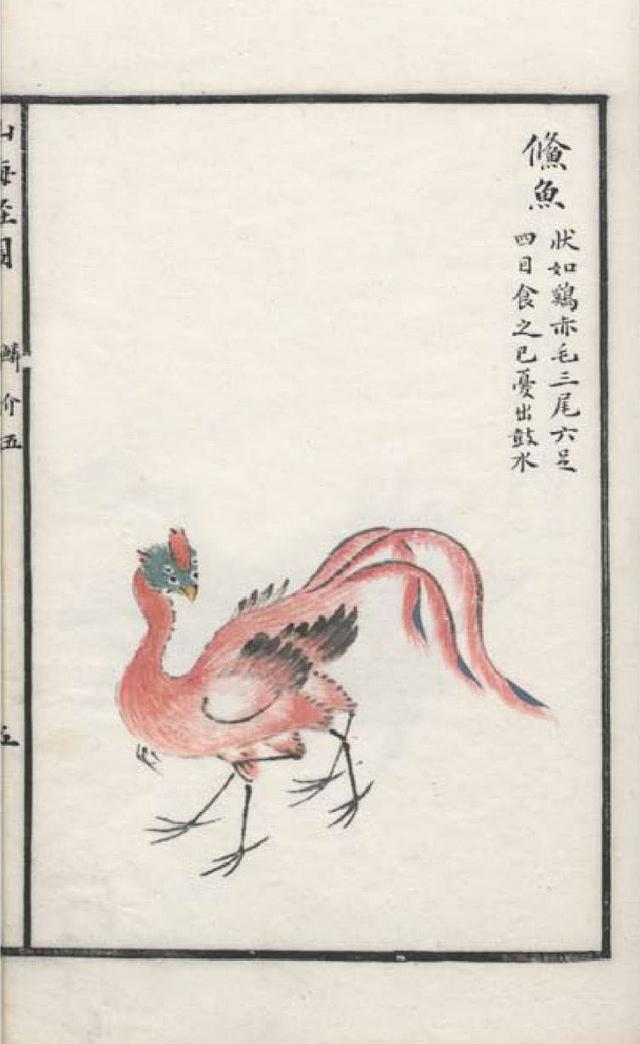 鯈魚
狀如鷄赤毛三尾六足
四目食之已憂出彭水
山海至圖
鱗介五
五